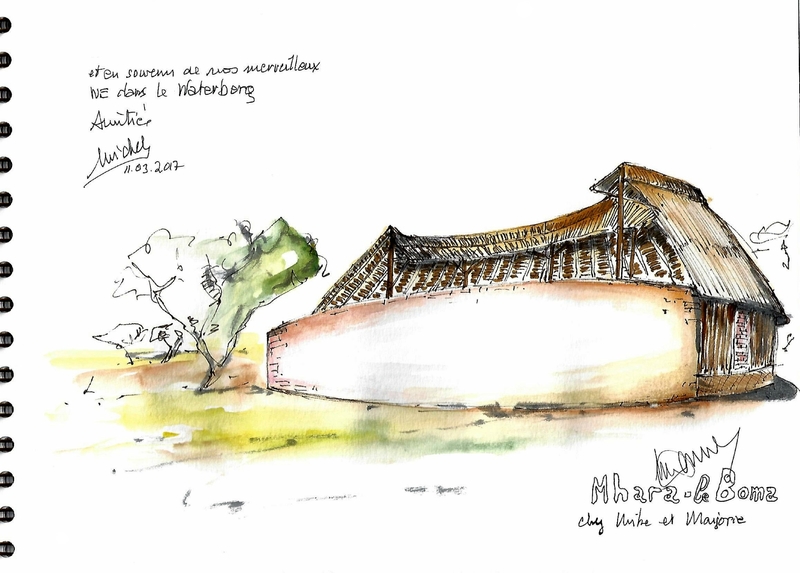 et en souvenir de nos merveilleux
WE dans le Waterberg
Amitiés
Michel
11.03.2017
Mhara - le Boma
chez Mike et Marjorie